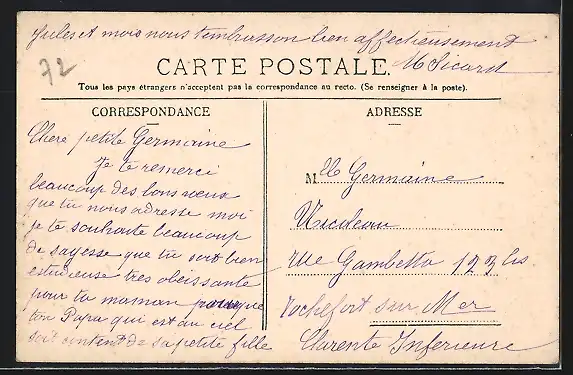 Jules et mois nous t'embrasson bien affectieusement
M Sicard
72
CARTE POSTALE.
Tous les pays étrangers n'acceptent pas la correspondance au recto. (Se renseigner à la poste).
CORRESPONDANCE
Chere petite Germaine
Je te remerci
beaucoup des bons vœux
que tu nous adresse moi
je te souhaite beaucoup
de sagesse que tu soit bien
estudieuse tres obeissante
pour ta maman pour que
ton Papa qui est au ciel
soit content de sa petite fille
ADRESSE
Mlle Germaine
Nicoleau
rue Gambetta 123 bis
Rochefort sur Mer
Charente Inferieure